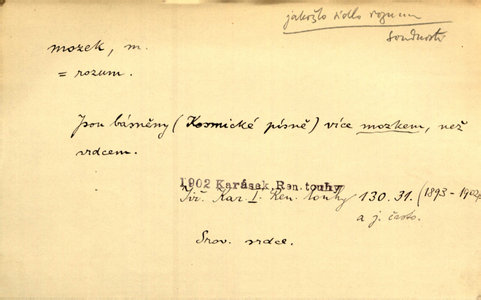 jakožto sídlo rozumu
soudnosti
mozek, m.
= rozum.
Jsou básněny (Kosmické písně) více mozkem, než
srdcem.
1902 Karásek, Ren. touhy
Jiř. Kar. I. Ren. touhy 130. 31. (1893-1902)
a j. často.
Srov. srdce.